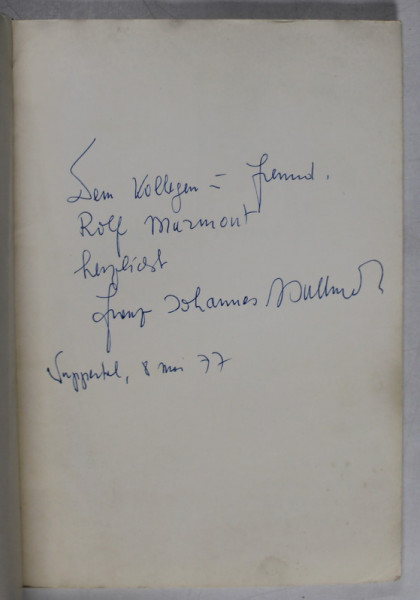 Dem Kollegen = freund.
Rolf Marmont
herzlichst
franz Johannes Bulhardt
Wuppertal, 8 mai 77